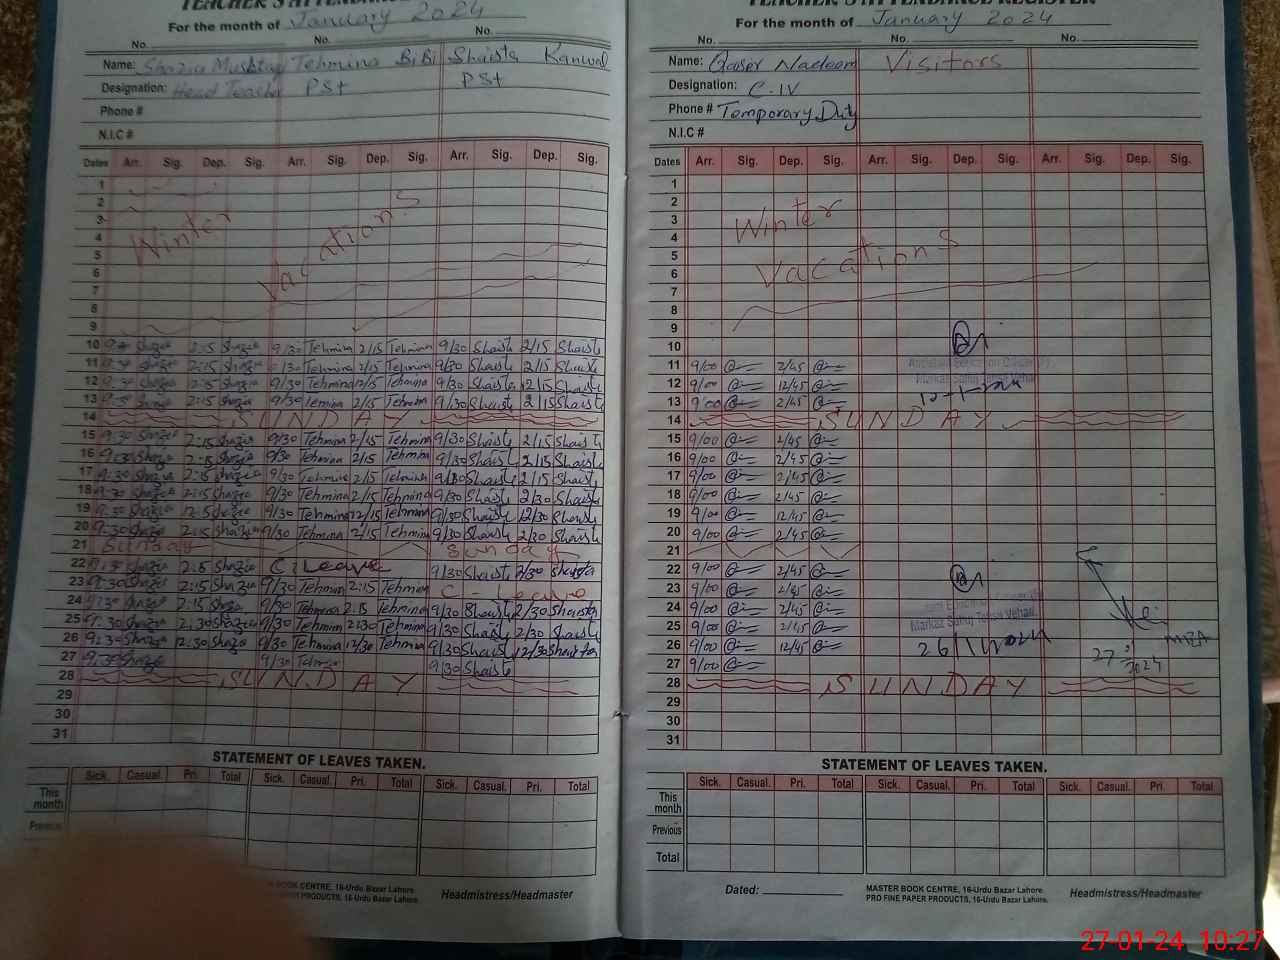 TEACHER'S ATTENDANCE
For the month of January 2024
No. No. No.
Name: Shazia Mushtaq Tehmina BiBi Shaista Kanwal
Designation: Head Teacher PSt PSt
Phone #
N.I.C #
Dates Arr. Sig. Dep. Sig. Arr. Sig. Dep. Sig. Arr. Sig. Dep. Sig.
1
2
3
4
5
6
7
8
9
Winter Vacations
10 Shazia 2:15 Shazia 9/30 Tehmina 2/15 Tehmina 9/30 Shaista 2/15 Shaista
11 Shazia 2:15 Shazia 9/30 Tehmina 2/15 Tehmina 9/30 Shaista 2/15 Shaista
12 Shazia Shazia 9/30 Tehmina Tehmina 9/30 Shaista 12/15 Shaista
13 Shazia 2:15 Shazia 9/30 Temina 2/15 Tehmina 9/30 Shaista 2/15 Shaista
14 SUNDAY
15 9:30 Shazia 2:15 Shazia 9/30 Tehmina 2/15 Tehmina 9/30 Shaista 2/15 Shaista
16 9:30 Shazia 2:15 Shazia 9/30 Tehmina 2/15 Tehmina 9/30 Shaista 2/15 Shaista
17 9:30 Shazia 2:15 Shazia 9/30 Tehmina 2/15 Tehmina 9/30 Shaista 2/15 Shaista
18 9:30 Shazia 2:15 Shazia 9/30 Tehmina 2/15 Tehmina 9/30 Shaista 2/30 Shaista
19 9:30 Shazia 12:15 Shazia 9/30 Tehmina 12/15 Tehmina 9/30 Shaista 12/30 Shaista
20 9:30 Shazia 2:15 Shazia 9/30 Tehmina 2/15 Tehmina 9/30 Shaista 2/30 Shaista
21 Sunday Sunday
22 Shazia 2:15 Shazia C. Leave 9/30 Shaista 2/30 Shaista
23 9:30 Shazia 2:15 Shazia 9/30 Tehmina 2:15 Tehmina C - Leave
24 9:30 Shazia 2:15 Shazia 9/30 Tehmina 2:15 Tehmina 9/30 Shaista 2/30 Shaista
25 9:30 Shazia 2:30 Shazia 9/30 Tehmina 2:30 Tehmina 9/30 Shaista 2/30 Shaista
26 9:30 Shazia 12:30 Shazia 9/30 Tehmina 12/30 Tehmina 9/30 Shaista 12/30 Shaista
27 9:30 Shazia 9/30 Tehmina 9/30 Shaista
28 SUNDAY
29
30
31
STATEMENT OF LEAVES TAKEN.
Sick. Casual. Pri. Total Sick. Casual. Pri. Total Sick. Casual. Pri. Total
This month
Previous
BOOK CENTRE, 16-Urdu Bazar Lahore.
PAPER PRODUCTS, 16-Urdu Bazar Lahore.
Headmistress/Headmaster
TEACHER'S ATTENDANCE REGISTER
For the month of January 2024
No. No. No.
Name: Qaiser Nadeem Visitors
Designation: C.IV
Phone # Temporary Duty
N.I.C #
Dates Arr. Sig. Dep. Sig. Arr. Sig. Dep. Sig. Arr. Sig. Dep. Sig.
1
2
3
4
5
6
7
8
9
Winter
Vacations
10
11 9/00 2/45
12 9/00 12/45
13 9:00 2/45
14 SUNDAY
15 9/00 2/45
16 9/00 2/45
17 9/00 2/45
18 9/00 2/45
19 9/00 12/45
20 9/00 2/45
21
22 9/00 2/45
23 9/00 2/45
24 9/00 2/45
25 9/00 2/45
26 9/00 12/45
27 9/00
28 SUNDAY
29
30
31
26/1/2024
MEA
27-1-2024
STATEMENT OF LEAVES TAKEN.
Sick. Casual. Pri. Total Sick. Casual. Pri. Total Sick. Casual. Pri. Total
This month
Previous
Total
Dated:
MASTER BOOK CENTRE, 16-Urdu Bazar Lahore.
PRO FINE PAPER PRODUCTS, 16-Urdu Bazar Lahore.
Headmistress/Headmaster
27-01-24 10:27